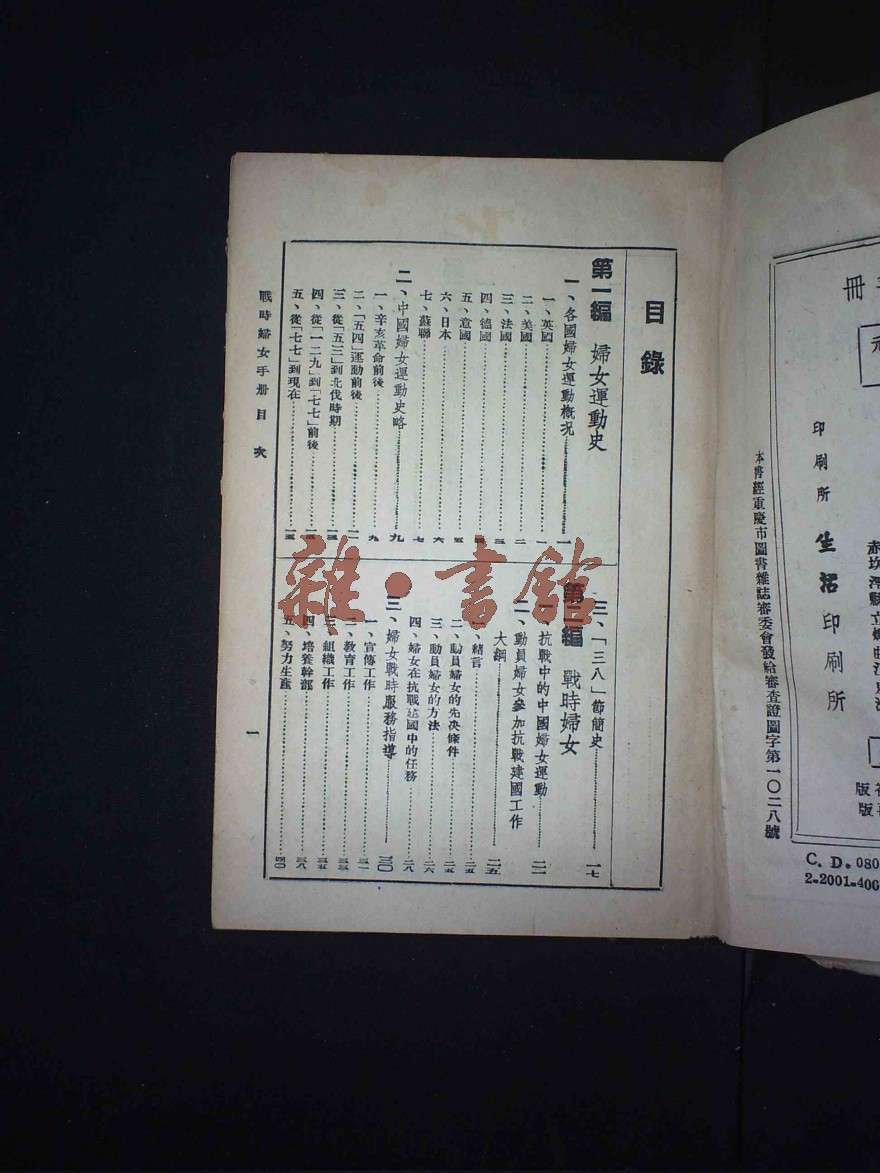 冊
元
印刷所 生活印刷所
本書經重慶市圖書雜誌審委會發給審查證圖字第一〇二八號
版
版
C. D. 080
2-2001-400
目錄
第一編 婦女運動史
一、各國婦女運動概況 一
一、英國 一
二、美國 二
三、法國 三
四、德國 四
五、意國 五
六、日本 六
七、蘇聯 七
二、中國婦女運動史略 九
一、辛亥革命前後 九
二、「五四」運動前後 一一
三、從「五三」到北伐時期 一三
四、從「一二九」到「七七」前後 一三
五、從「七七」到現在 一五
三、「三八」節簡史 一七
第二編 戰時婦女
一、抗戰中的中國婦女運動 二一
二、動員婦女參加抗戰建國工作大綱 二五
一、緒言 二五
二、動員婦女的先決條件 二五
三、動員婦女的方法 二六
四、婦女在抗戰建國中的任務 二八
三、婦女戰時服務指導 三〇
一、宣傳工作 三一
二、教育工作 三三
三、組織工作 三五
四、培養幹部 三八
五、努力生產 四〇
戰時婦女手册 目次 一
雜·書館